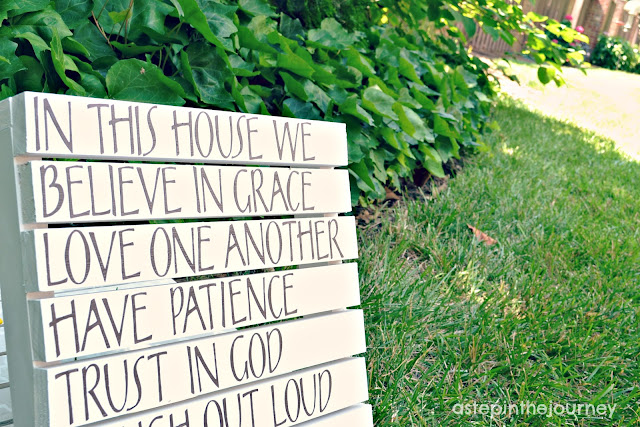 IN THIS HOUSE WE
BELIEVE IN GRACE
LOVE ONE ANOTHER
HAVE PATIENCE
TRUST IN GOD
OUT LOUD
astepinthejourney